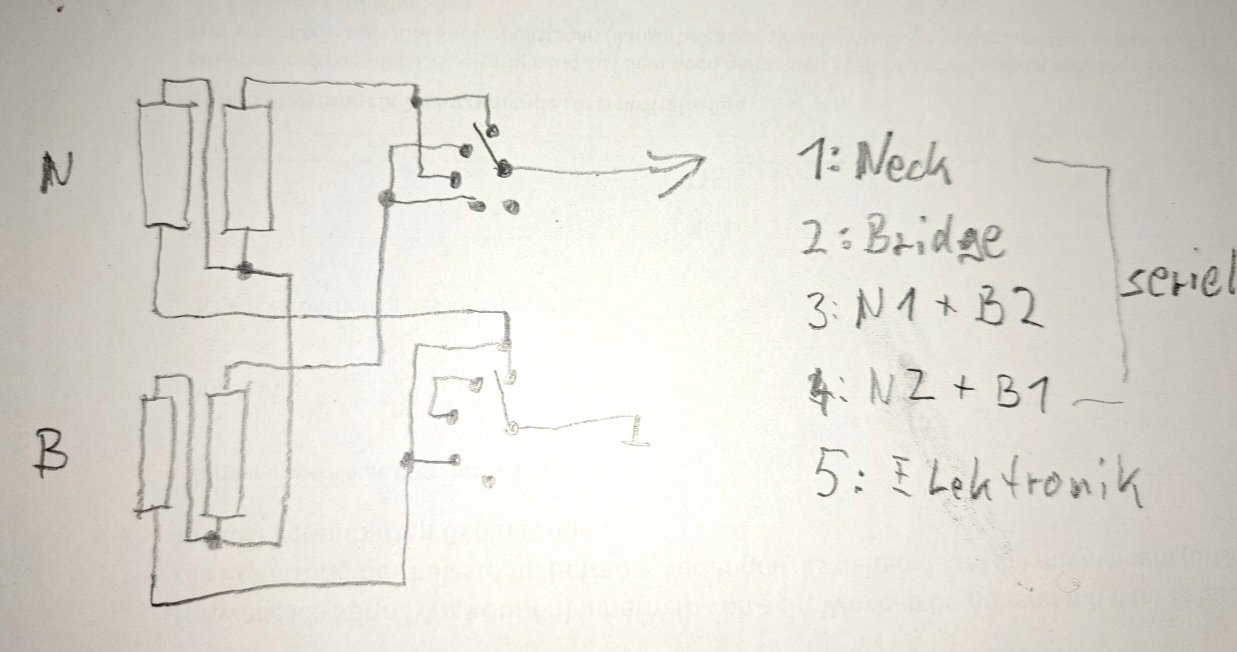 N
B
1: Neck
2: Bridge
3: N1 + B2
4: N2 + B1
seriel
5: Elektronik